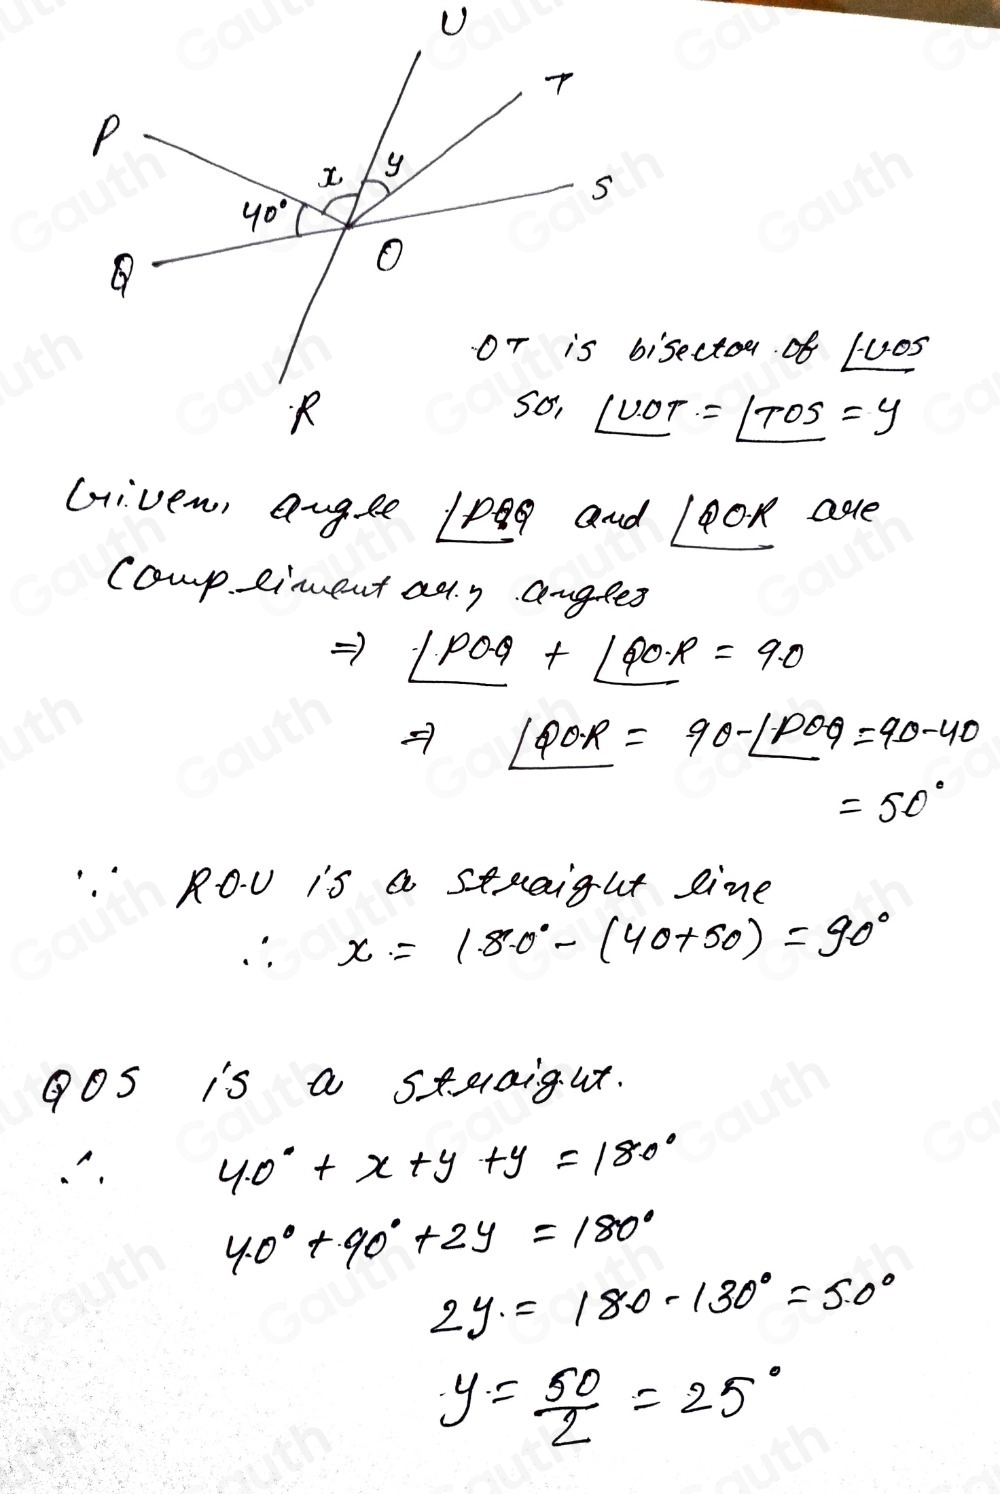 U
T
P
x
y
S
40°
O
Q
R
OT is bisector of ∠UOS
So, ∠UOT = ∠TOS = y
Given, angle ∠POQ and ∠QOR are
Complimentary angles
⇒ ∠POQ + ∠QOR = 90
⇒ ∠QOR = 90-∠POQ = 90-40
= 50°
∵ ROU is a straight line
∴ x = 180° - (40+50) = 90°
QOS is a straight.
∴ 40° + x + y + y = 180°
40° + 90° + 2y = 180°
2y = 180 - 130° = 50°
y = 50/2 = 25°
Gauth